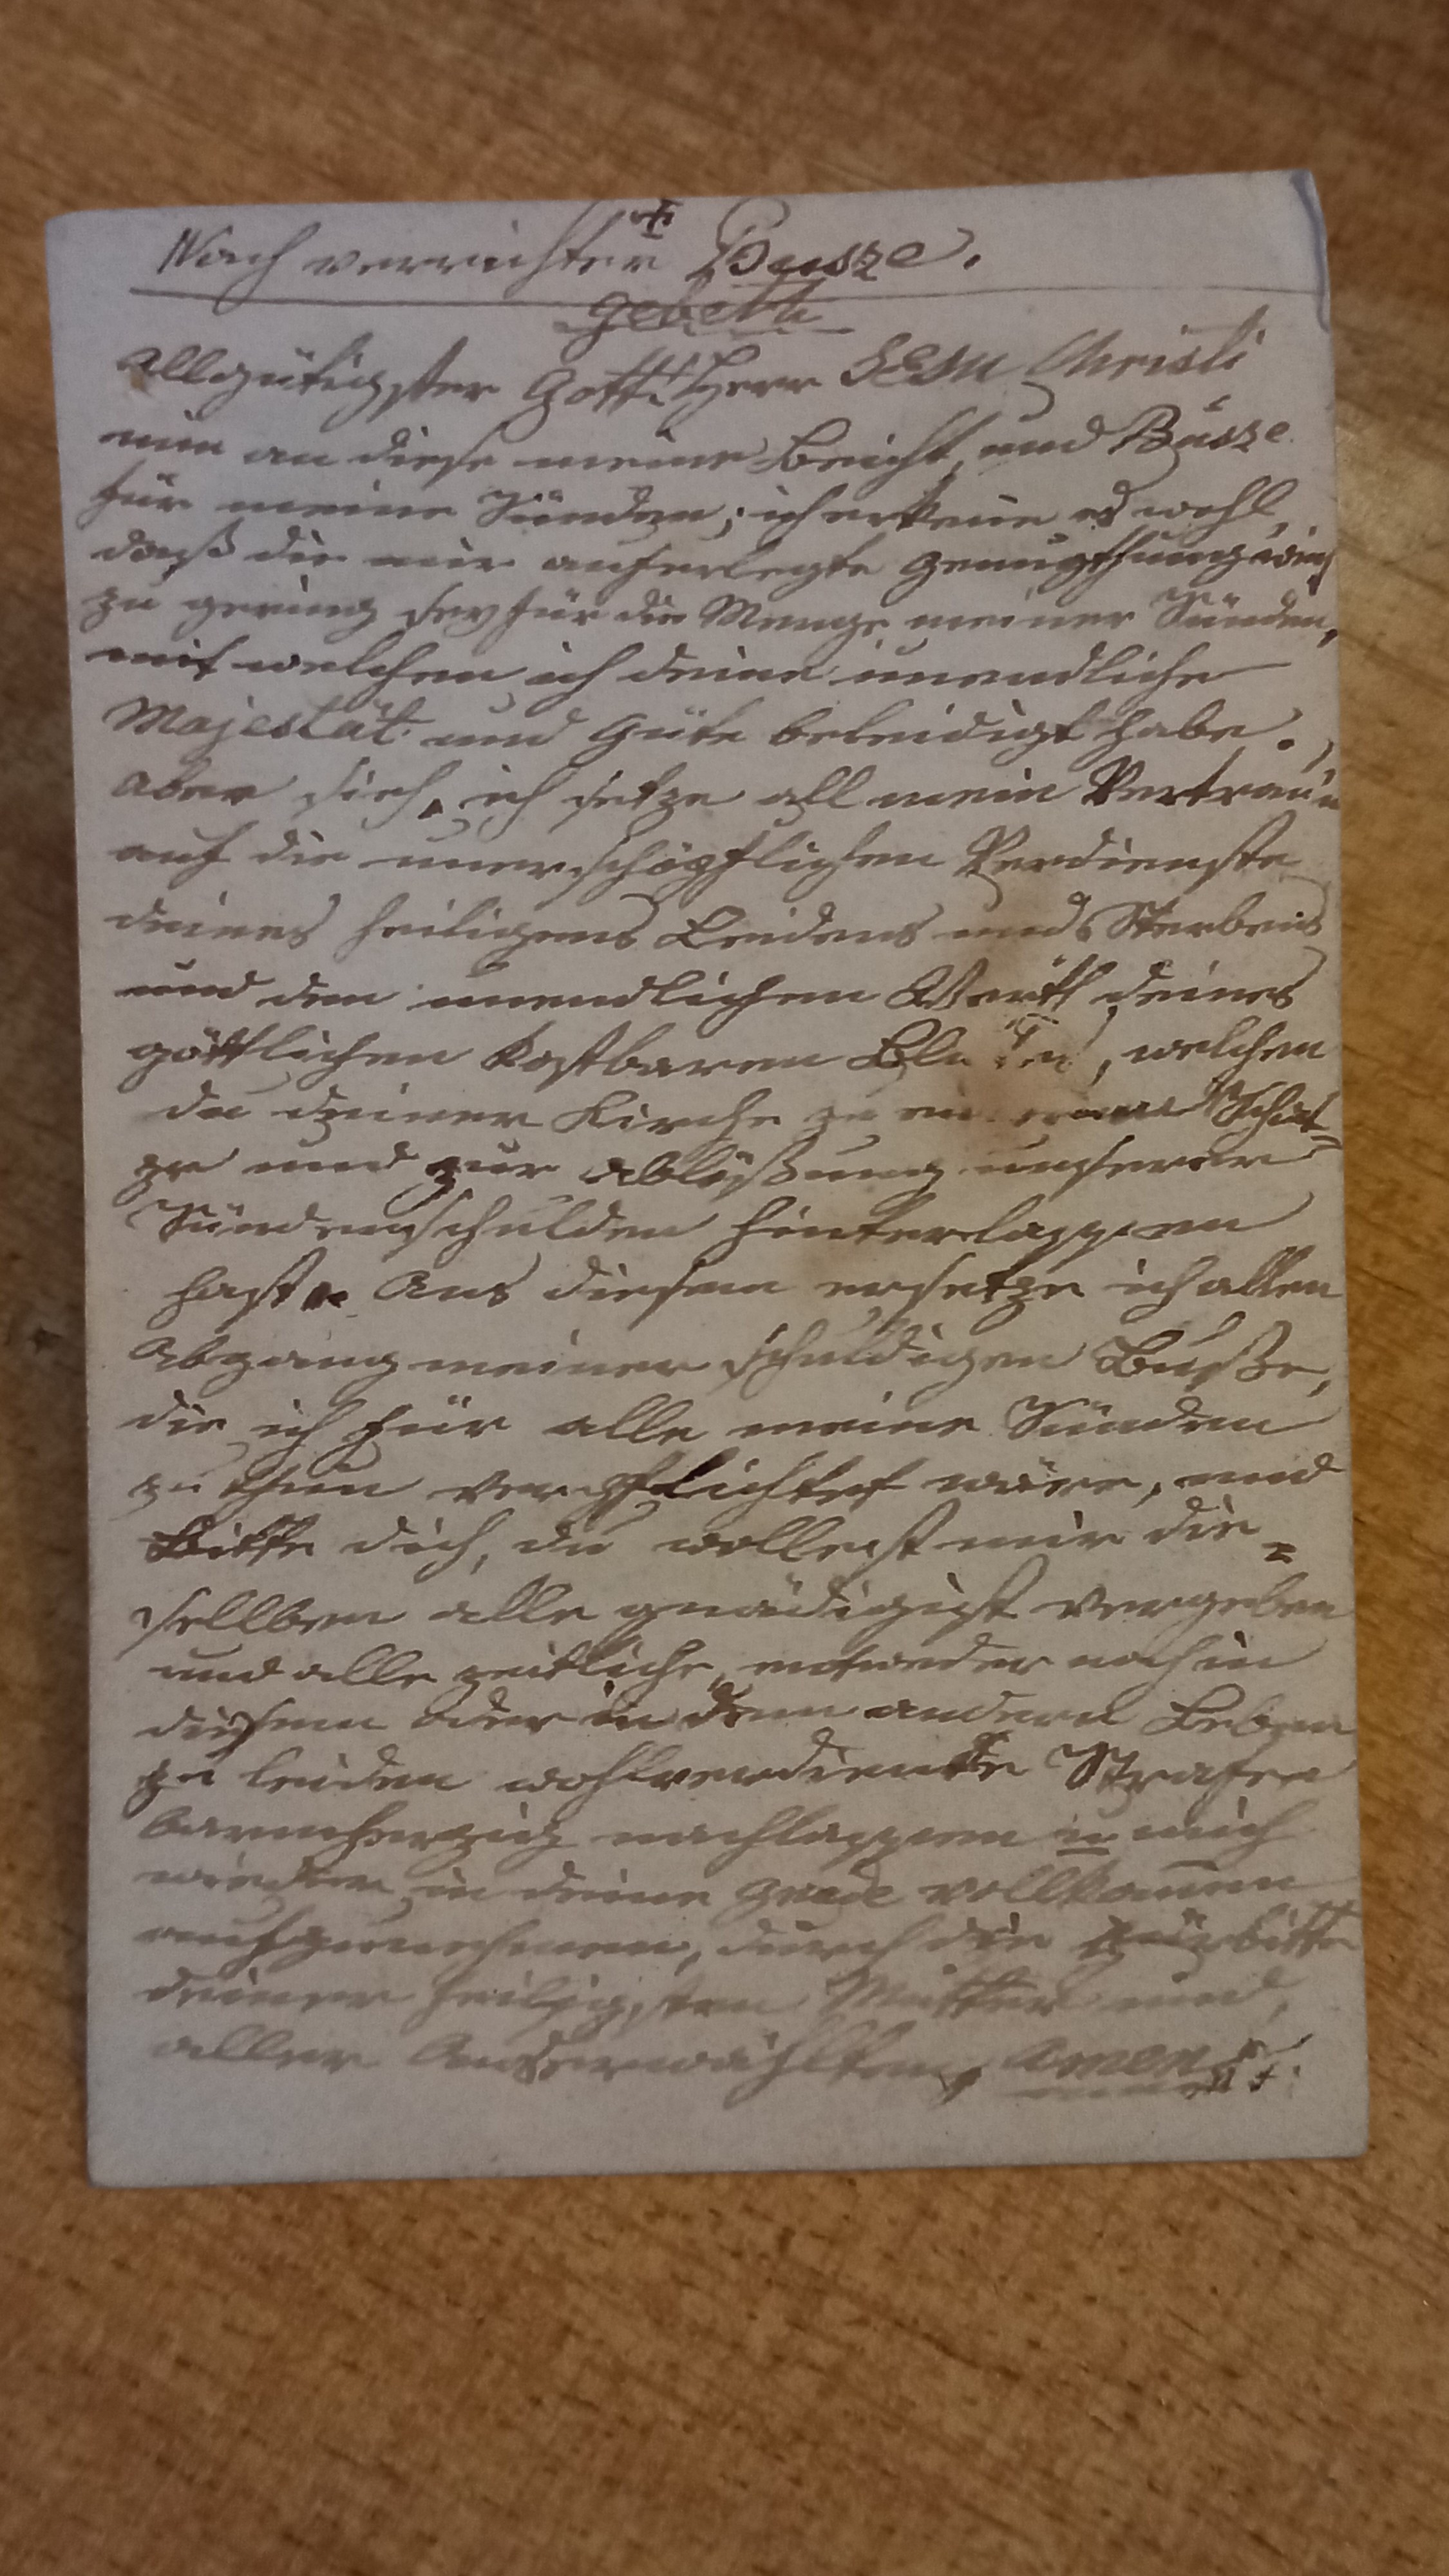 Nach verrichter Busze.
Gebett
Allgütigster Gott! Herr Jesu Christi
nim an diese meine Beicht, und Büsze
für meine Sünden; ich erkene es wohl,
daß die mir auferlegte Genugthuung
zu gering sey für die Menge meiner Sünden,
mit welchen ich deine unendliche
Majestät und Güte beleidigt habe.,
aber sieh, ich setze all mein Vertrauen
auf die unerschöpflichen Verdienste
deines heiligens Leidens und Sterbens
und den unendlichen Werth deines
göttlichen kostbaren Blutes, welchen
du deiner Kirche zu Schat=
ze und zur Ablüßung unserer
Sündenschulden hinterlassen
hast. Aus diesem ersetze ich allen
Abgang meiner schuldigen Buße,
die ich für alle meine Sünden
zu thun verpflichtet wäre, und
Bitte dich, du wollest mir die=
sellben alle gnädigist vergeben
und alle zeitliche, entweder noch in
diesem oder in dem andern Leben
zu leiden wohlverdiente Strafen
barmherzig nachlassen u mich
wieder in deine vollkomen
aufzunehmen, durch die Fürbitte
deiner heiligsten Mutter und
aller Auserwählten, Amen